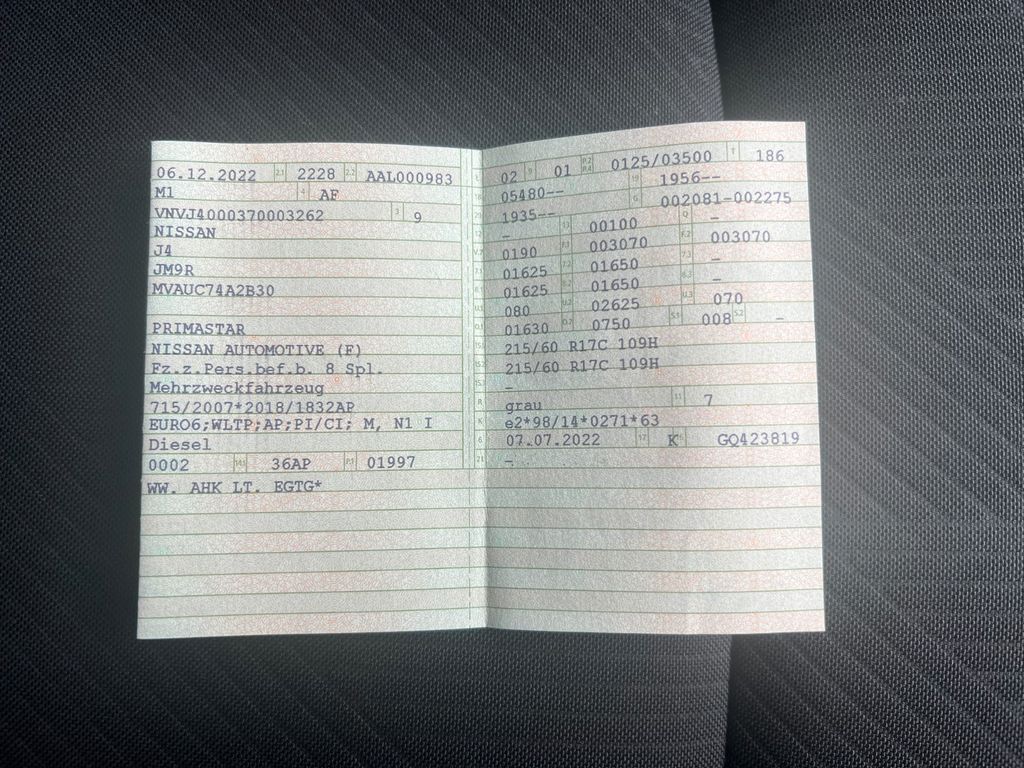 06.12.2022 2.1 2228 2.2 AAL000983
M1 4 AF
VNVJ4000370003262 3 9
NISSAN
J4
JM9R
MVAUC74A2B30
PRIMASTAR
NISSAN AUTOMOTIVE (F)
Fz.z.Pers.bef.b. 8 Spl.
Mehrzweckfahrzeug
715/2007*2018/1832AP
EURO6;WLTP;AP;PI/CI; M, N1 I
Diesel
0002 14.1 36AP P.1 01997
WW. AHK LT. EGTG*
02 9 01 P.2 P.4 0125/03500 T 186
05480-- 19 1956--
1935-- G 002081-002275
- 13 00100 Q -
0190 F.1 003070 F.2 003070
7.1 01625 7.2 01650 7.3 -
8.1 01625 8.2 01650 8.3 -
U.1 080 U.2 02625 U.3 070
O.1 01630 O.2 0750 S.1 008 S.2 -
15.1 215/60 R17C 109H
15.2 215/60 R17C 109H
15.3 -
R grau 11 7
K e2*98/14*0271*63
6 07.07.2022 17 K 16 GQ423819
21 -